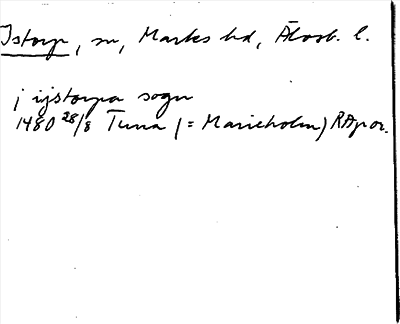 Istorp, sn, Marks hd, Älvsb. l.
j ijstorpa sogn
1480 28/8 Tuna (= Marieholm) RAp or.